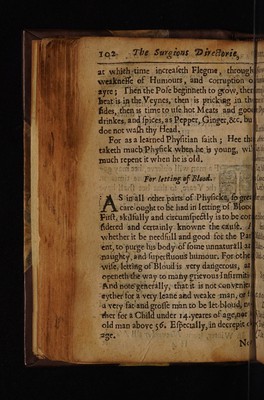 102 The Surgions Directorie,
at which time increaseth Flegme, through
weaknesse of Humours, and corruption o
ayre; Then the Pose beginneth to grow, then
heat is in the Veynes, then is pricking in the
sides, then is time to use hot Meats and good
drinkes, and spices, as Pepper, Ginger, &c, but
doe not wash thy Head,
For as a learned Physitian saith; Hee that
taketh much Physick when he is young, wil
much repent it when he is old,
For letting of Bloud.
AS in all other parts of Physicke, so great
care ought to be had in letting of Bloud
First, skilfully and circumspectly is to be con
sidered and certainly knowne the cause,
whether it be needfull and good for the Pati
ent, to purge his body of some unnaturall
naughty, and superfluous humour. For othe
wise, letting of Bloud is very dangerous, a
openeth the way to many grievous infirmit
And note generally, that it is not convenien
eyther for a very leane and weake man, or
a very fat and grosse man to be let bloud, no
ther for a Child under 14. yeares of age, nor
old man above 56. Especially, in decrepit
age.
No